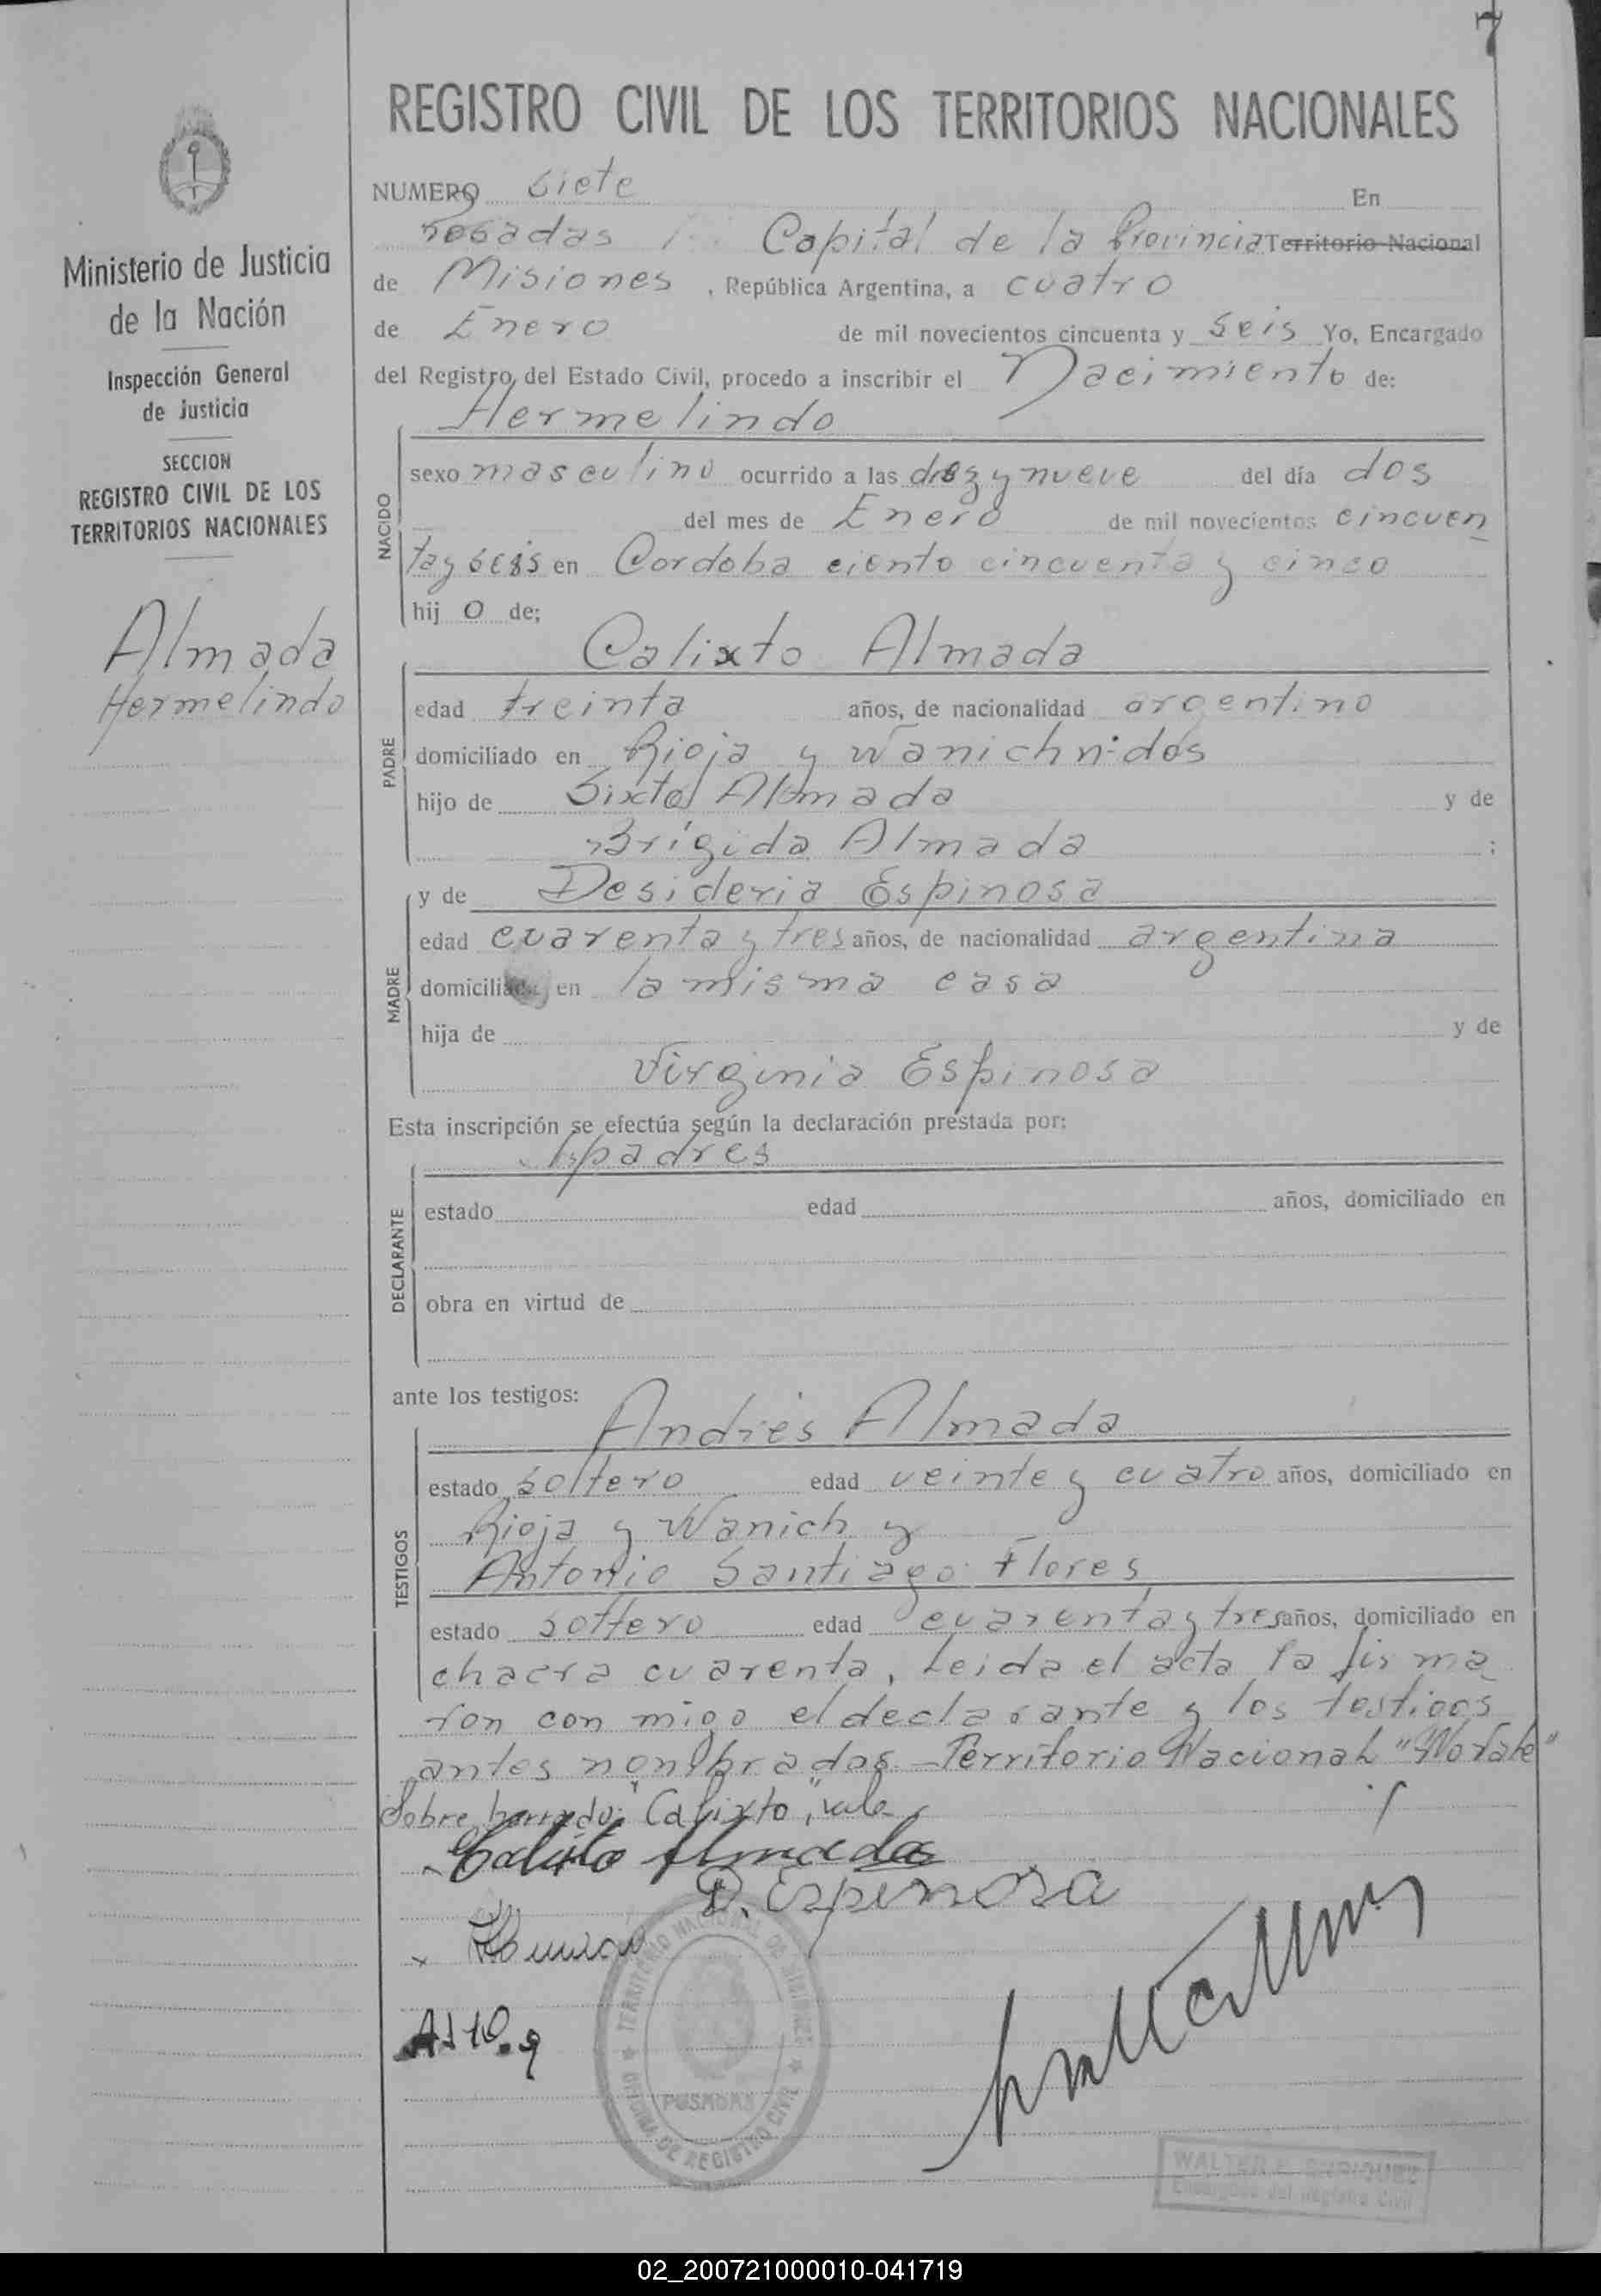 7
REGISTRO CIVIL DE LOS TERRITORIOS NACIONALES
Ministerio de Justicia
de la Nación
Inspección General
de Justicia
SECCION
REGISTRO CIVIL DE LOS
TERRITORIOS NACIONALES
Almada
Hermelindo
NUMERO siete En
Posadas Capital de la Provincia Territorio Nacional
de Misiones, República Argentina, a cuatro
de Enero de mil novecientos cincuenta y seis Yo, Encargado
del Registro del Estado Civil, procedo a inscribir el Nacimiento de:
Hermelindo
NACIDO
sexo masculino ocurrido a las diez y nueve del día dos
del mes de Enero de mil novecientos cincuen
ta y seis en Cordoba ciento cincuenta y cinco
hij o de;
Calixto Almada
PADRE
edad treinta años, de nacionalidad argentino
domiciliado en Rioja y Wanich n: dos
hijo de Sixto Almada y de
Brígida Almada ;
MADRE
y de Desideria Espinosa
edad cuarenta y tres años, de nacionalidad argentina
domiciliada en la misma casa
hija de y de
Virginia Espinosa
Esta inscripción se efectúa según la declaración prestada por:
padres
DECLARANTE
estado edad años, domiciliado en
obra en virtud de
ante los testigos:
Andrés Almada
TESTIGOS
estado soltero edad veinte y cuatro años, domiciliado en
Rioja y Wanich y
Antonio Santiago Flores
estado soltero edad cuarenta y tres años, domiciliado en
chacra cuarenta, Leida el acta la firma
ron con migo el declarante y los testigos
antes nombrados - Territorio Nacional "No vale"
Sobre borrado: "Calixto", vale
Calixto Almada
D. Espinosa
TERRITORIO NACIONAL DE MISIONES
POSADAS
OFICINA DE REGISTRO CIVIL
WALTER ENRIQUEZ
Encargado del Registro Civil
02_200721000010-041719